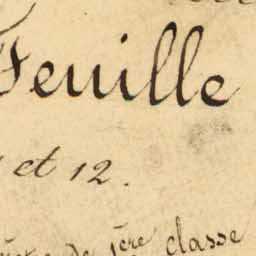 Feuille
et 12.
de 1ère classe